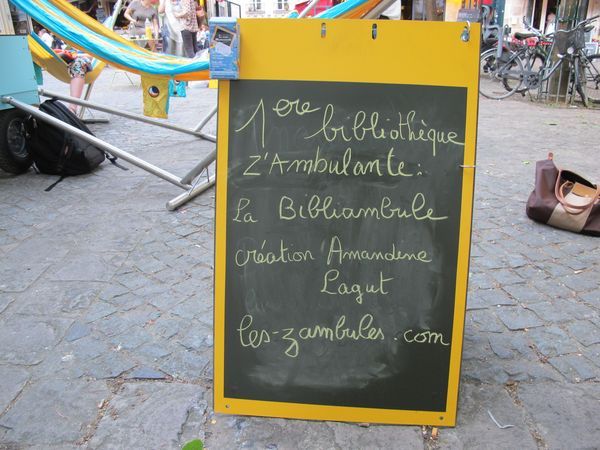 1ere bibliothèque
Z'Ambulante :
La Bibliambule
création Amandene
Lagut
les-zambules.com